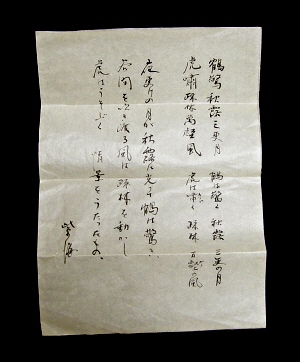 鶴驚秋露三更月　鶴は驚く 秋露 三更の月
虎嘯疎林万壑風　虎は嘯く 疎林 万壑の風
夜更けの月が秋露に光て鶴は驚き、
谷間を吹き渡る風は疎林を動かし
虎はうそぶく 情景をうたったもの。